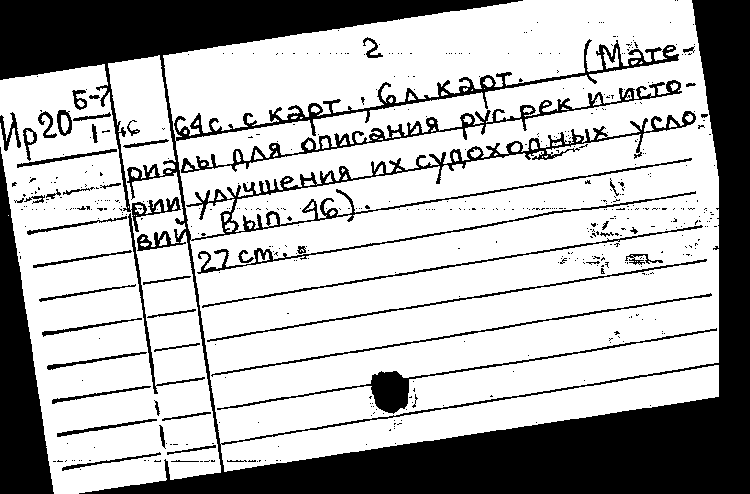 2
Ир20 Б-7/1-46
64с. с карт.; 6л. карт. (Мате-
риалы для описания рус. рек и исто-
рии улучшения их судоходных усло-
вий. Вып. 46).
27 см.